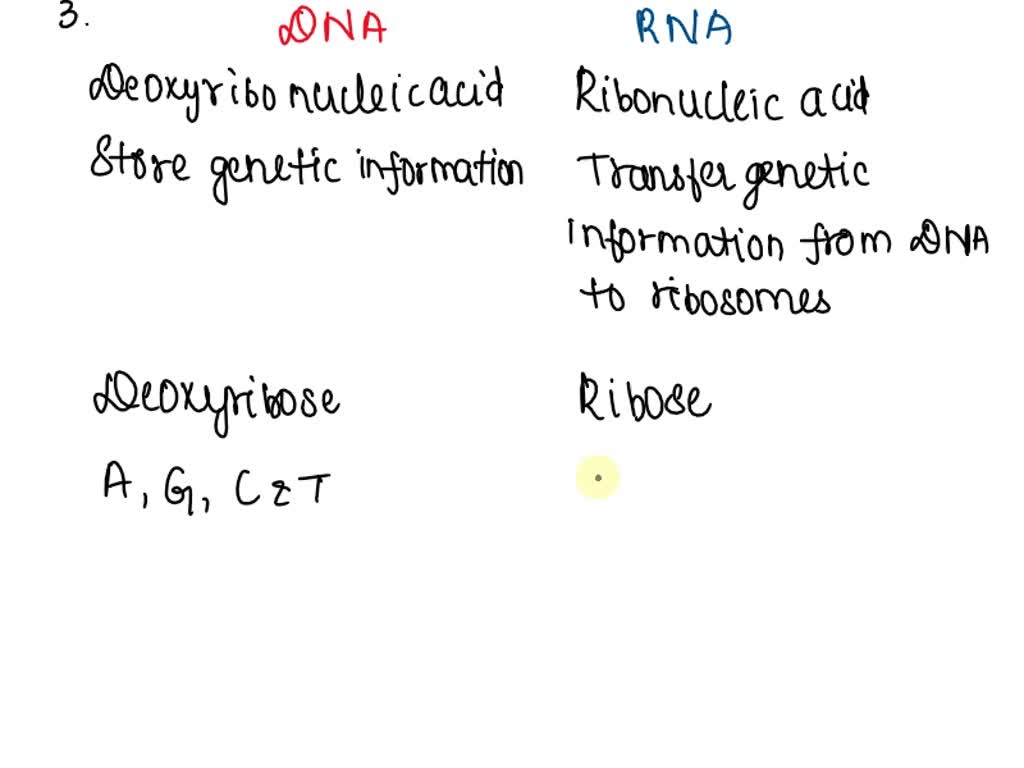 3.
DNA RNA
Deoxyribo nucleic acid Ribonucleic acid
Store genetic information Transfer genetic
information from DNA
to ribosomes
Deoxyribose Ribose
A, G, C & T